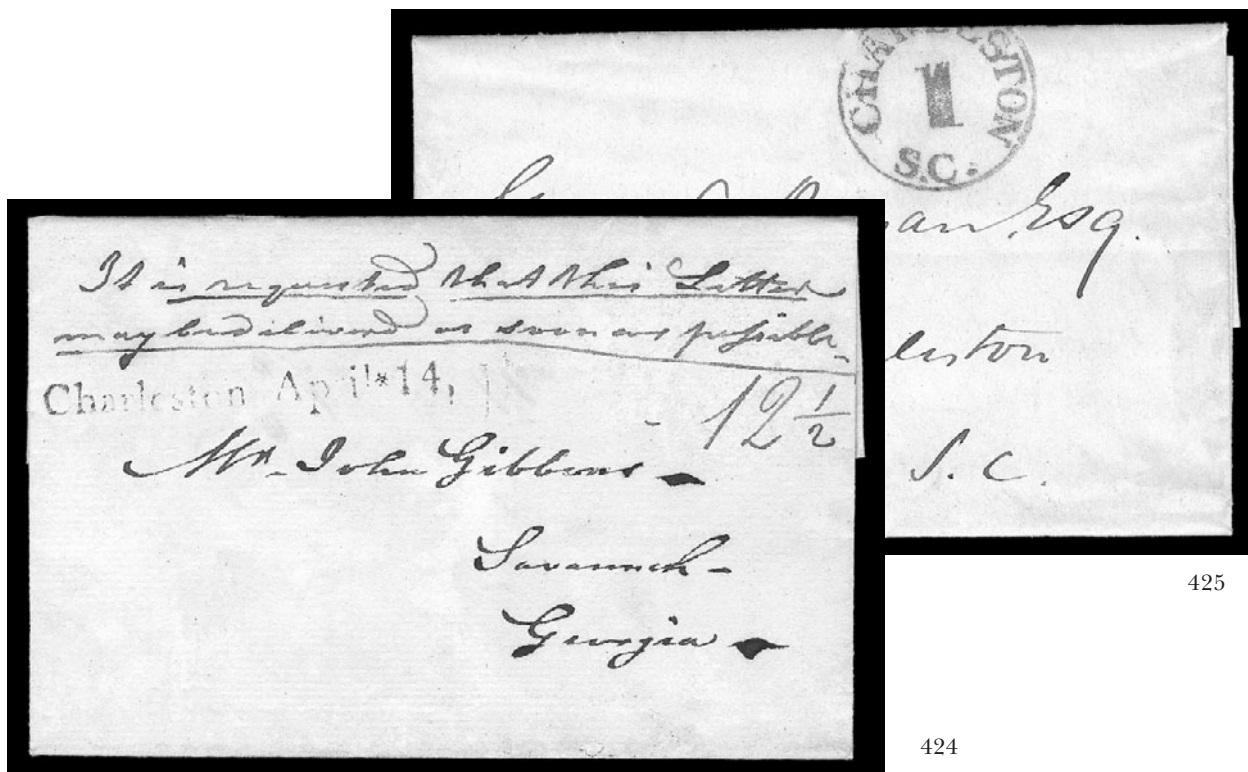 CHARLESTON
1
S.C.
an Esq.
leston
S. C.
425
It is requested that this Letter
may be delivered as soon as possible
Charleston April*14,
12 1/2
Mr. John Gibbons
Savannah
Georgia
424